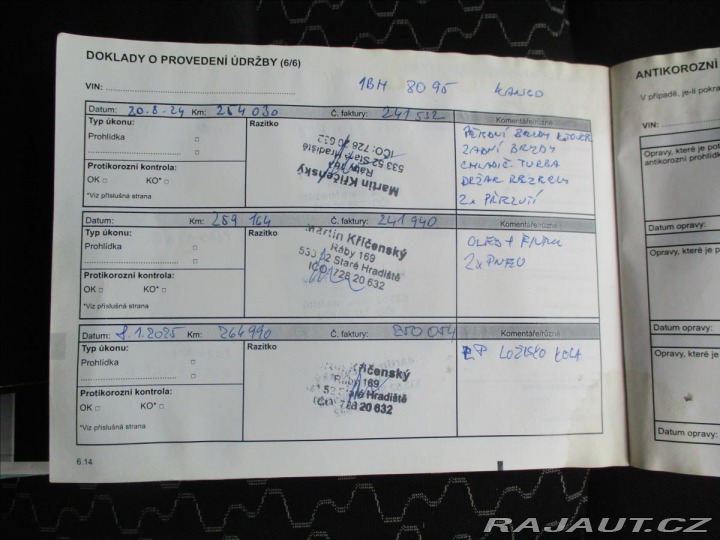 DOKLADY O PROVEDENÍ ÚDRŽBY (6/6)
VIN:
1BH 8095
Datum: 20.8-24 Km: 254 030 Č. faktury: 241 532 Komentáře/různé
Typ úkonu:
Razítko
Prohlídka
Protikorozní kontrola:
OK KO*
*Viz příslušná strana
Martin Křičenský
Ráby 162
533 52 Staré Hradiště
IČO: 728 20 632
ZADNÍ BRZDY
CHLADIČ TURBA
2x
Datum: Km: 259 164 Č. faktury: 241 940 Komentáře/různé
Typ úkonu:
Razítko
Prohlídka
Protikorozní kontrola:
OK KO*
*Viz příslušná strana
Martin Křičenský
Ráby 169
533 52 Staré Hradiště
IČO: 728 20 632
OLEJ +
2x PNEU
Datum: 8.1.2025 Km: 264990 Č. faktury: 250 054 Komentáře/různé
Typ úkonu:
Razítko
Prohlídka
Protikorozní kontrola:
OK KO*
*Viz příslušná strana
Křičenský
Ráby 169
Staré Hradiště
728 20 632
LOŽISKO KOLA
6.14
ANTIKOROZNÍ
V případě, je-li
VIN:
Opravy, které je
antikorozní prohlídky
Datum opravy:
Opravy, které je
Datum opravy:
Opravy, které je
Datum opravy:
RAJAUT.CZ